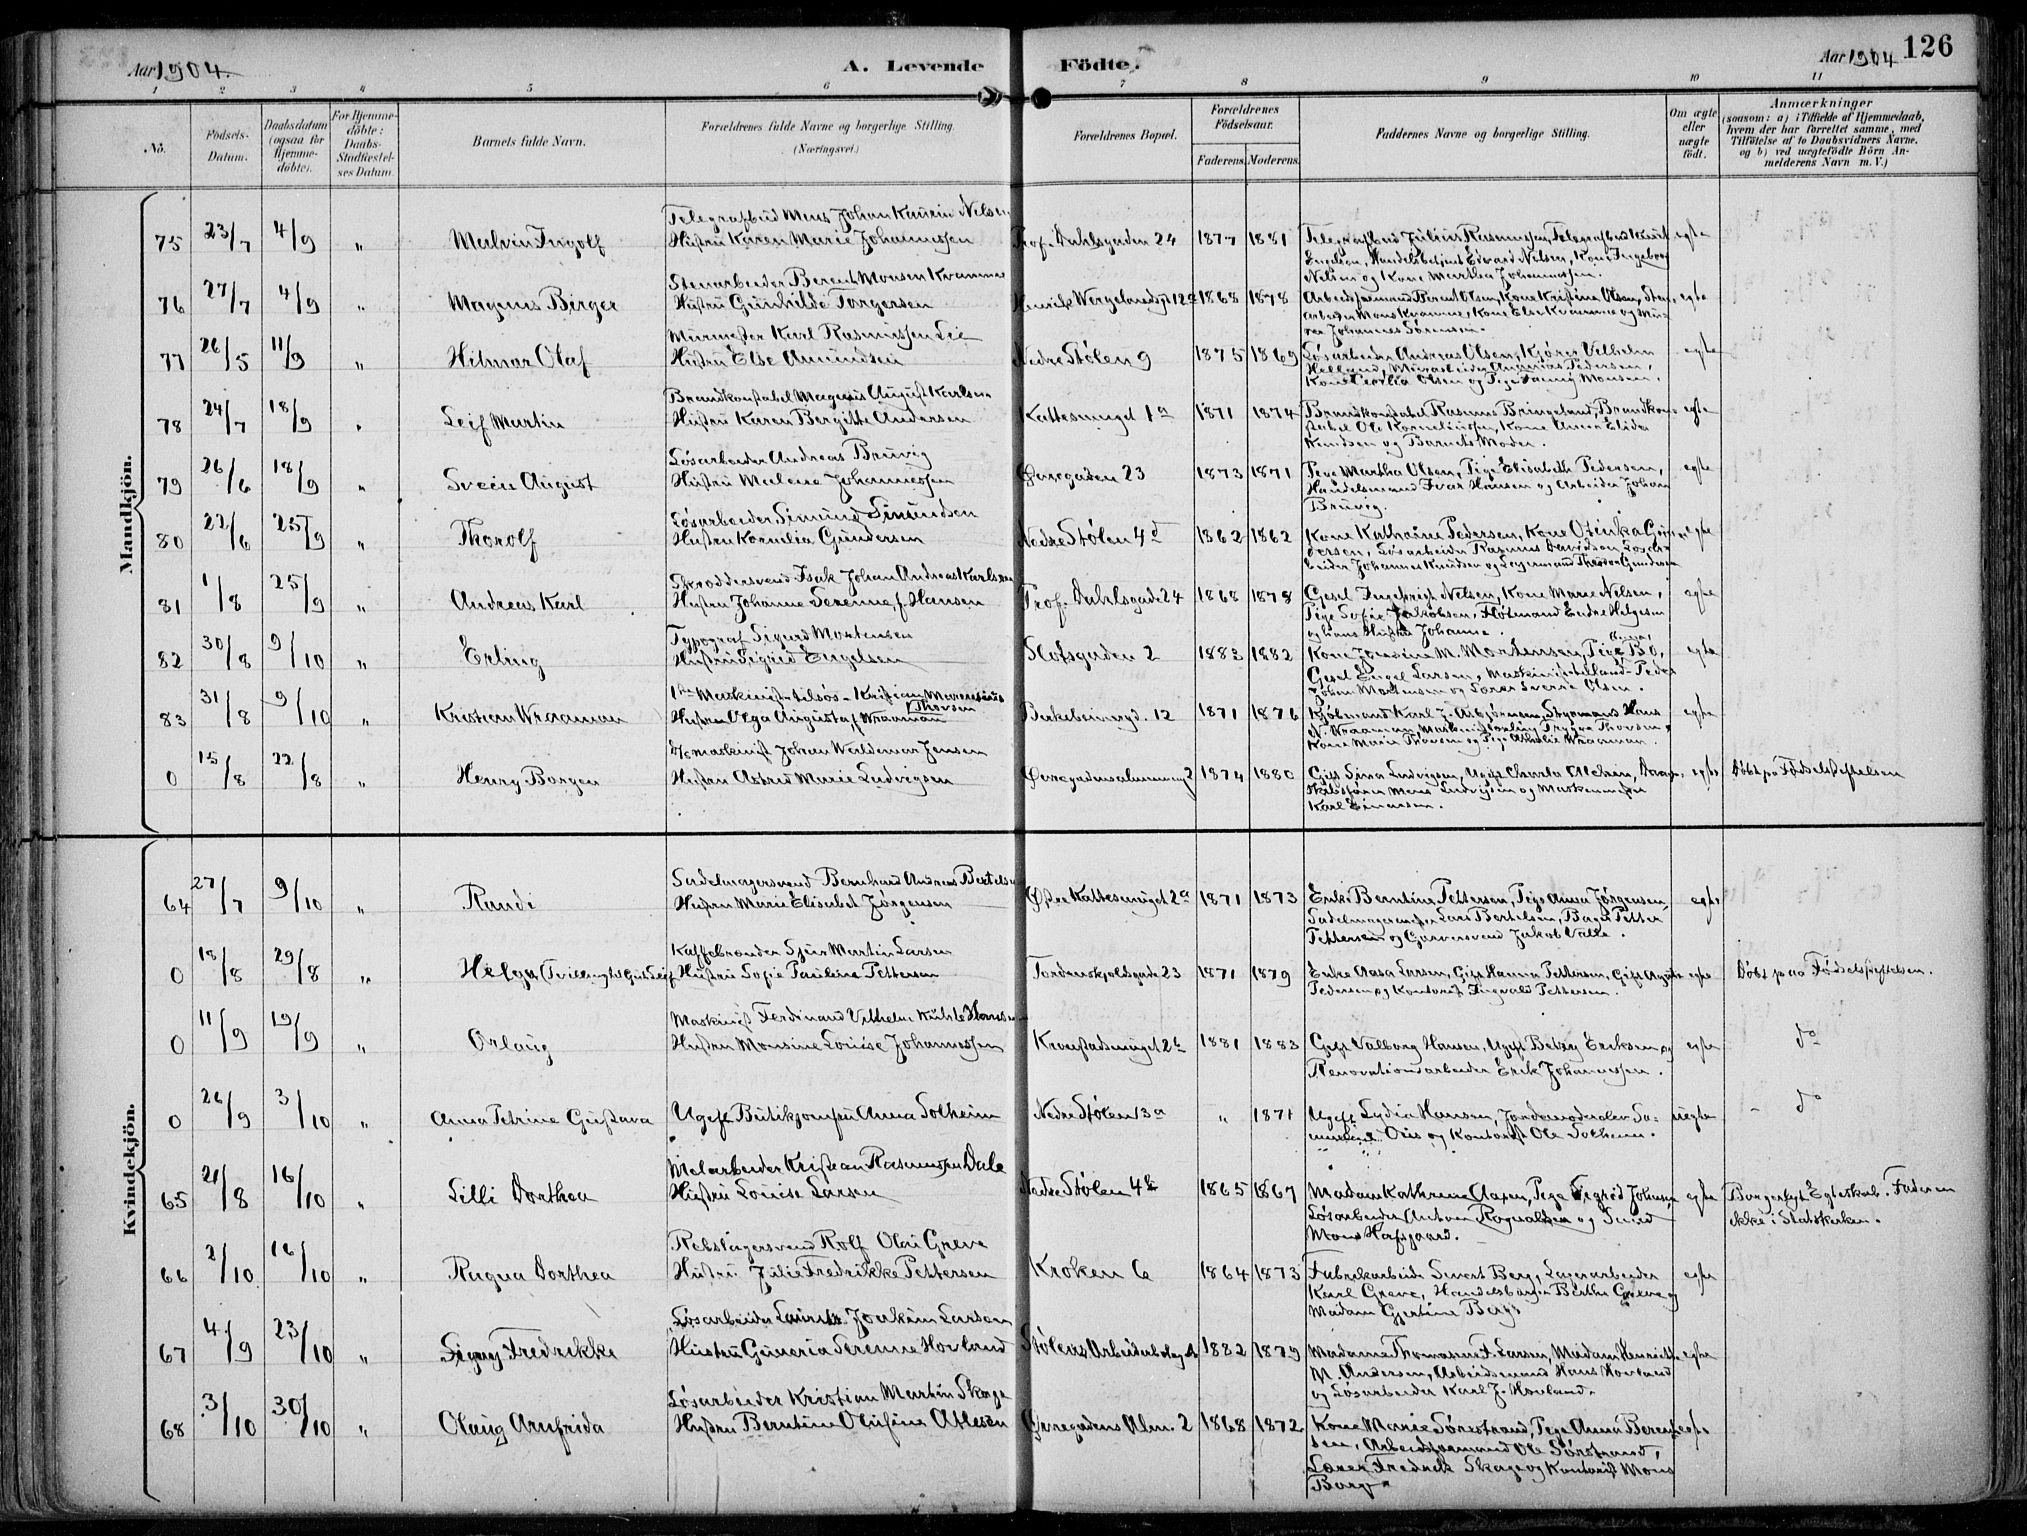 Aar 1904.
A. Levende Födte.
Aar 1904
126
1 2 3 4 5 6 7 8 9 10 11
No.
Födsels-Datum.
Daabsdatum (ogsaa for Hjemmedöbte).
For Hjemmedöbte: Daabs-Stadfæstelses Datum.
Barnets fulde Navn.
Forældrenes fulde Navne og borgerlige Stilling.
(Næringsvei.)
Forældrenes Bopæl.
Forældrenes Födselsaar.
Faderens. Moderens.
Faddernes Navne og borgerlige Stilling.
Om ægte eller uægte födt.
Anmærkninger
(saasom: a) i Tilfælde af Hjemmedaab, hvem der har forrettet samme, med Tilföielse af to Daabsvidners Navne. og b) ved uægtefödte Börn Anmelderens Navn m. V.)
Mandkjön.
Telegrafbud Mens Johan Kaurin Nilsen
75 23/7 4/9 „ Malvin Ingolf Hustru Karen Marie Johannessen Prof. Dahlsgaden 24 1877 1881 Telegrafbud Julius Rasmussen, Telegrafbud Knut ægte
Engelsen, Handelsbetjent Edvard Nelsen, Kone Ingeborg
Nelsen og Kone Martha Johannessen.
Stenarbeider Berent Monsen Kramme
76 27/7 4/9 „ Magnus Birger Hustru Gunhilde Torgersen Henrik Wergelandsgt 12a 1868 1878 Arbeidsformand Berent Olsen, Kone Kristine Olsen, Sten- ægte
arbeider Mons Kramme, Kone Else Kramme og
Johannes Sørensen.
Murmester Karl Rasmussen Lie
77 26/5 11/9 „ Hilmar Olaf Hustru Else Amundsen Nedre Stølen 9 1875 1869 Løsarbeider Andreas Olsen, Kjører Vilhelm ægte
Helland, Murarbeider Ananias Pedersen,
Kone Cecilia Olsen og Pige Fanny Monsen.
Brandkonstabel Magnus August Karlsen
78 24/7 18/9 „ Leif Martin Hustru Karen Bergitte Andersen Kattesmuget 1a 1871 1874 Brandkonstabel Rasmus Bringeland, Brandkon- ægte
stabel Ole Korneliussen, Kone Anna Elida
Knudsen og Barnets Moder.
Løsarbeider Andreas Bruvig
79 26/6 18/9 „ Svein August Hustru Malene Johannessen Øvregaden 23 1873 1871 Pige Martha Olsen, Pige Elisabeth Pedersen, ægte
Handelsmand Ivar Hansen og Arbeider Johan
Bruvig.
Løsarbeider Simund Simundsen
80 22/6 25/9 „ Thorolf Hustru Kornelia Gundersen Nedre Stølen 4d 1862 1862 Kone Kathrine Pedersen, Kone Otinka Gun- ægte
dersen, Løsarbeider Rasmus Davidsen, Løsar-
beider Johannes Knudsen og Lagermand Theodor Gundersen
Skræddersvend Isak Johan Andreas Karlsen
81 1/8 25/9 „ Andreas Karl Hustru Johanne Serenne, f. Hansen Prof. Dahlsgade 24 1868 1878 Gesel Ingebrigt Nelsen, Kone Marie Nelsen, ægte
Pige Sofie Jakobsen, Flötmand Endre Helgesen
og hans Hustru Johanne.
Typograf Sigurd Mortensen
82 30/8 9/10 „ Erling Hustru Sigrid Engelsen Slotsgaden 2 1883 1882 Kone M. Mortensen, Pige Bo, ægte
Gesel Engel Larsen,
Johan Mortensen og Lærer Sverre Olsen.
1ste Maskinist tilsøs - Kristian Marensius
Thorsen
83 31/8 9/10 „ Kristian Wraaman Hustru Olga Augusta, f. Wraaman Birkebeinergd. 12 1871 1876 Kjøbmand Karl J. Asbjørnsen, Styrmand Hans ægte
N. Wraaman, Trygve Thorsen,
Kone Marie Thorsen og Pige Athalie Wraaman.
Maskinist Johan Waldemar Jensen
0 15/8 22/8 „ Henry Borgen Hustru Astrid Marie Ludvigsen Øvregadensalmenning 2 1874 1880 Gift Sina Ludvigsen, Ugift Charla ægte Døbt paa Fødselsstiftelsen
Skibsfører Mens Ludvigsen og
Karl Einarsen.
Kvindekjön.
Sadelmagersvend Bernhard Andreas Bertelsen
64 27/7 9/10 „ Randi Hustru Marie Elisabet Jørgensen Østre Kattesmuget 2a 1871 1873 Enke Berntine Pettersen, Pige Anna Jørgensen, ægte
Sadelmagermester Lars Bertelsen, Petter
Pettersen og Garversvend Jakob Valle.
Kaffebrænder Sjur Martin Larsen
0 18/8 29/8 „ Helga (Tvilling til Gut Leif) Hustru Sofie Pauline Pettersen Tordenskjoldsgade 23 1871 1879 Enke Aasa Larsen, Gift Hanna Pettersen, Gift ægte Døbt paa Fødselsstiftelsen.
Pedersen og Kontorist Ingvald Pettersen.
Maskinist Ferdinand Vilhelm Kühle Hansen
0 11/9 19/9 „ Orlaug Hustru Monsine Louise Johannessen Kronstadsmuget 2a 1881 1883 Gift Valborg Hansen, Ugift Betzy Eriksen og ægte do
Renovationsarbeider Erik Johannessen.
0 26/9 3/10 „ Anna Petrine Gustava Ugift Butikjomfru Anna Solheim Nedre Stølen 13a „ 1871 Ugift Lydia Hansen, Jordemoderelev Sa- uægte - do
Oris og Kontorist Ole Solheim.
Melarbeider Kristian Rasmussen Dale
65 21/8 16/10 „ Lilli Dorthea Hustru Louise Larsen Nedre Stølen 4b 1865 1867 Madam Kathrine Aasen, Pige Sigrid Johnsen, ægte Borgerligt Egteskab. Faderen
Løsarbeider Anton Rognaldsen og Smed ikke i Statskirken.
Mons Hafsgaard.
Rebslagersvend Rolf Olai Greve
66 2/10 16/10 „ Ragna Dorthea Hustru Julie Fredrikke Pettersen Kroken 6 1864 1873 Fabrikarbeider Sivert Berg, Lagerarbeider ægte
Karl Greve, Handelsborger Berthe Greve og
Madam Gjertine Berg.
Løsarbeider Laurits Joakim Larsen
67 4/9 23/10 „ Signy Fredrikke Hustru Guneria Serenne Hovland Stølens Arbeiderbolig 1882 1879 Madam Thomasine F. Larsen, Madam Henriette ægte
M. Andersen, Arbeidsmand Hans Hovland
og Løsarbeider Karl J. Hovland.
Løsarbeider Kristian Martin Skage
68 3/10 30/10 „ Olaug Arnfrida Hustru Berntine Olufine Atlesen Øvregadens Alm. 2 1868 1872 Kone Marie Sørstrand, Pige Anna Berent- ægte
sen, Arbeidsformand Ole Sørstrand,
Lærer Fredrik Skage og Kontorist Mons
Borge